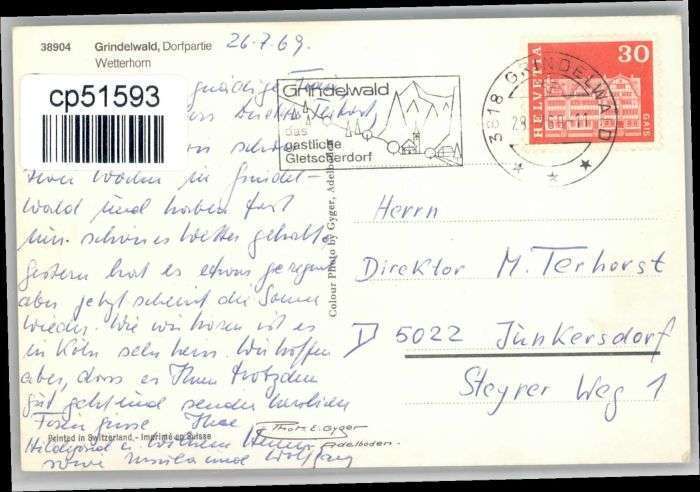 38904 Grindelwald, Dorfpartie
Wetterhorn
26.7.69.
cp51593
gnädige Frau
Direktor Terhorst,
schon
Wochen in Grindel-
wald und haben fast
nur schönes Wetter gehabt.
Gestern hat es etwas geregnet
aber jetzt scheint die Sonne
wieder. Wie wir hören ist es
in Köln sehr heiss. Wir hoffen
aber, dass es Ihnen trotzdem
gut geht und senden herzlichen
Feriengrüsse Ihre
Hildegund u. Wilhelm
sowie Ursula und Wolfgang
Printed in Switzerland - Imprimé en Suisse
Colour Photo by Gyger, Adelboden
Phot. E. Gyger
Adelboden.
Grindelwald
das
gastliche
Gletscherdorf
3818 GRINDELWALD
HELVETIA
30
GAIS
Herrn
Direktor M. Terhorst
D 5022 Junkersdorf
Steyrer Weg 1